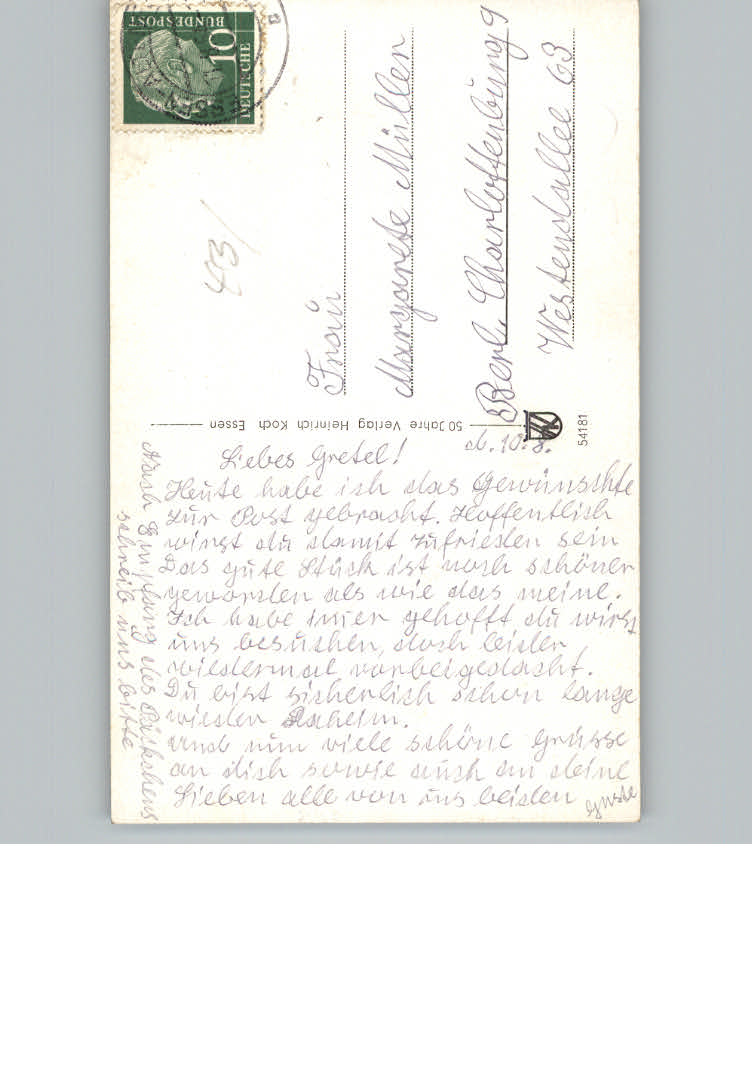 DEUTSCHE
BUNDESPOST
10
43/
Frau
Margarete Müller
Berl. Charlottenburg 9
Westendallee 63
50 Jahre Verlag Heinrich Koch Essen
54181
d. 10.8.
Liebes Gretel!
Heute habe ich das Gewünschte
zur Post gebracht. Hoffentlich
wirst du damit zufrieden sein
Das gute Stück ist noch schöner
geworden als wie das meine.
Ich habe imer gehofft du wirst
uns besuchen, doch leider
wiedermal vorbeigedacht.
Du bist sicherlich schon lange
wieder Daheim.
und nun viele schöne Grüsse
an dich sowie auch an deine
Lieben alle von uns beiden
Nach Empfang des Päckchens
schreib uns bitte